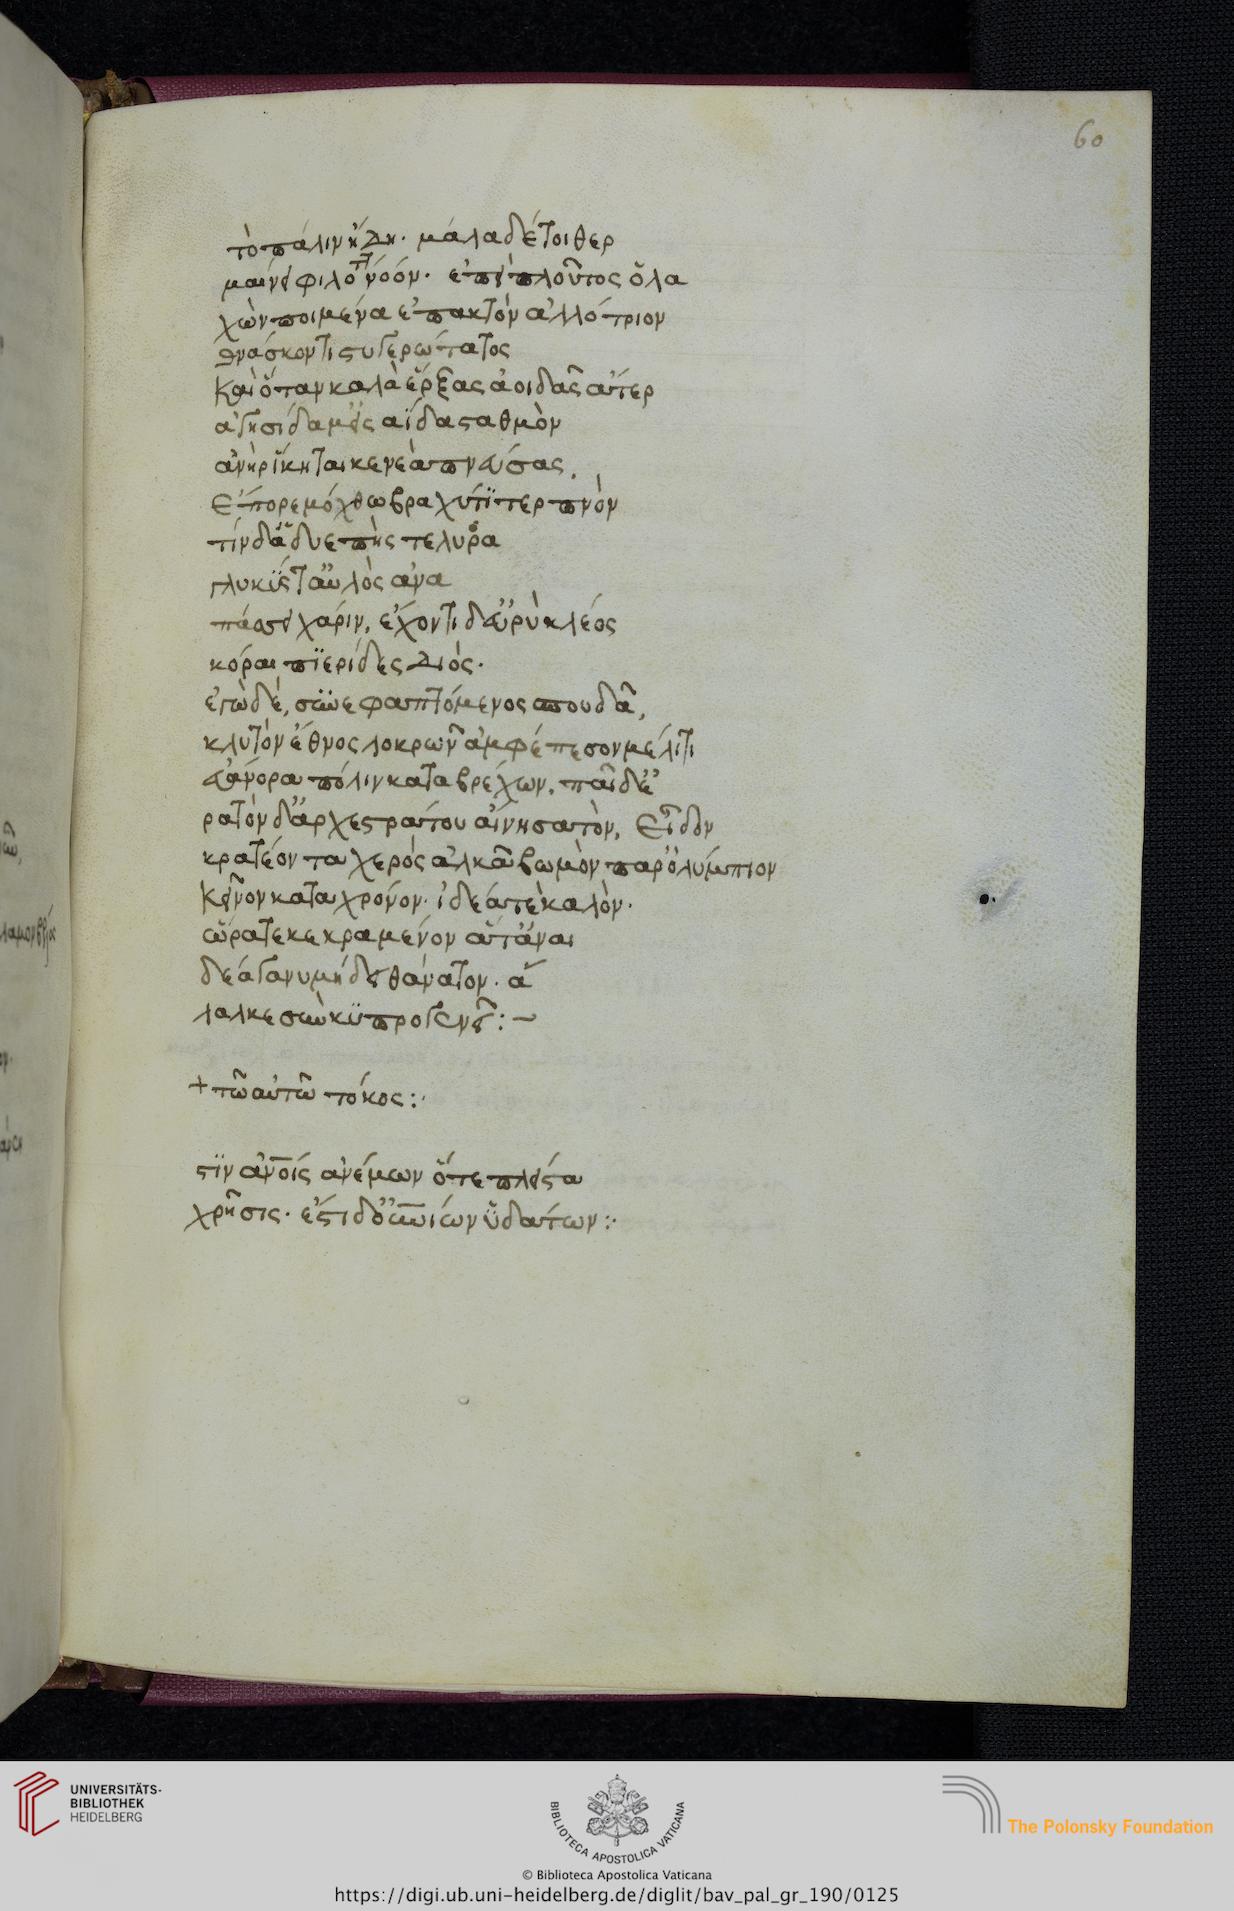 60
τὸ πάλιν ἤδη· μάλα δέ τοι θερ
μαίνει φιλότητι νόον· ἐπεὶ πλοῦτος ὅ λα
χὼν ποιμένα ἐπακτὸν ἀλλότριον
θνάσκοντι στυγερώτατος
Καὶ ὅταν καλὰ ἔρξας ἀοιδᾶς ἄτερ
ἁγησίδαμ' εἰς ἀΐδα σταθμὸν
ἀνὴρ ἵκηται κενεὰ πνεύσας,
ἔπορε μόχθω βραχύ τι τερπνὸν
τὶν δ' ἁδυεπής τε λύρα
γλυκύς τ' αὐλὸς ἀνα
πάσσει χάριν, ἔχοντι δ' εὐρὺ κλέος
κόραι πϊερίδες Διός·
ἐγὼ δέ, συνεφαπτόμενος σπουδᾶ,
κλυτὸν ἔθνος λοκρῶν ἀμφέπεσον μέλιτι
εὐάνορα πόλιν καταβρέχων, παῖδ' ἐ
ρατὸν δ' ἀρχεστράτου αἴνησα τὸν, Εἶδον
κρατέον τα χερὸς ἀλκᾶ βωμὸν παρ' ὀλύμπιον
Κεῖνον κατα χρόνον· ἰδέα τὲ καλὸν·
ὥρα τε κεκραμένον ἅ τ' ἄναι
δέα γανυμήδει θάνατον· ἄ
λαλκε σὺν κϋπρογενεῖ:~
+ τῶ αὐτῶ τόκος:·
ἔστϊν ἀνοις ἀνέμων ὅτε πλεῖστα
χρῆσις· ἔστι δ' οὐρανίων ὑδάτων:·
UNIVERSITÄTS-
BIBLIOTHEK
HEIDELBERG
BIBLIOTECA APOSTOLICA VATICANA
The Polonsky Foundation
© Biblioteca Apostolica Vaticana
https://digi.ub.uni-heidelberg.de/diglit/bav_pal_gr_190/0125